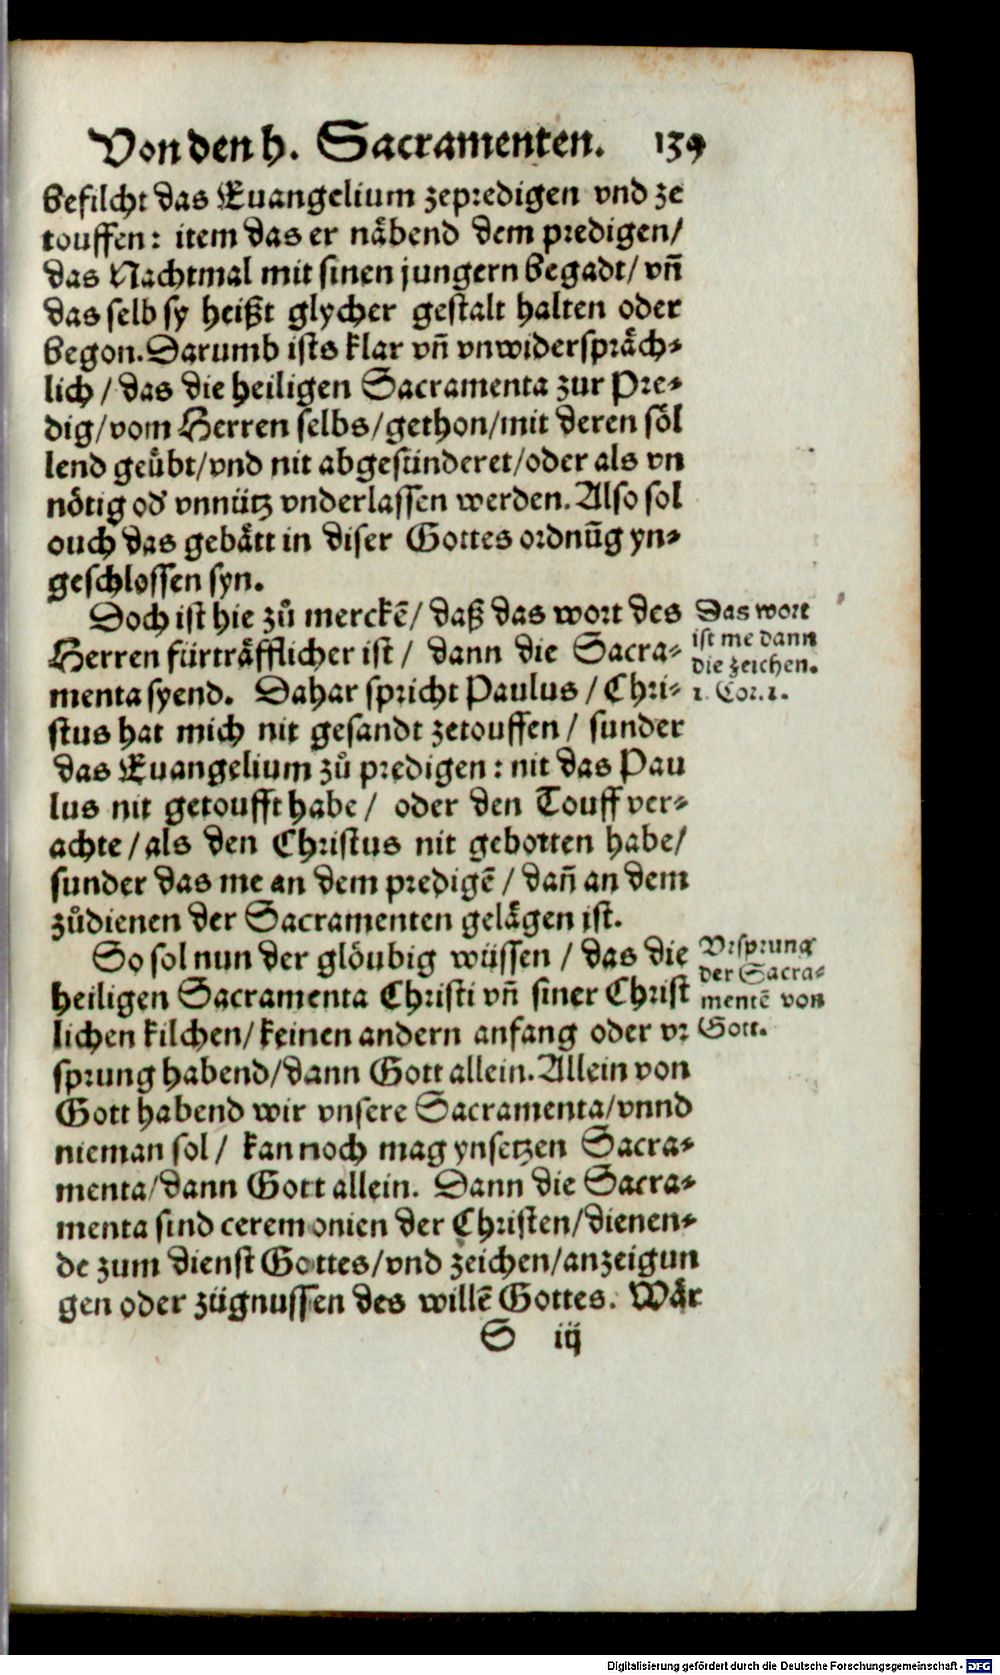 Von den h. Sacramenten. 139
befilcht das Euangelium zepredigen vnd ze
touffen: item das er nåbend dem predigen/
das Nachtmal mit sinen jungern begadt/ vñ
das selb sy heißt glycher gestalt halten oder
begon. Darumb ists klar vñ vnwidersprå̈ch⸗
lich / das die heiligen Sacramenta zur Pre⸗
dig/ vom Herren selbs/ gethon/ mit deren söl
lend geůbt/ vnd nit abgesünderet/ oder als vn
nötig od' vnnütz vnderlassen werden. Also sol
ouch das gebått in diser Gottes ordnūg yn⸗
geschlossen syn.
Doch ist hie zů merckē/ daß das wort des
Herren fürtråfflicher ist / dann die Sacra⸗
menta syend. Dahar spricht Paulus / Chri⸗
stus hat mich nit gesandt zetouffen / sunder
das Euangelium zů predigen: nit das Pau
lus nit getoufft habe / oder den Touff ver⸗
achte / als den Christus nit gebotten habe/
sunder das me an dem predigē / dañ an dem
zůdienen der Sacramenten gelågen ist.
Das wort
ist me dann
die zeichen.
1. Cor. 1.
So sol nun der glöubig wüssen / das die
heiligen Sacramenta Christi vñ siner Christ
lichen kilchen/ keinen andern anfang oder vr
sprung habend/ dann Gott allein. Allein von
Gott habend wir vnsere Sacramenta/ vnnd
nieman sol / kan noch mag ynsetzen Sacra⸗
menta/ dann Gott allein. Dann die Sacra⸗
menta sind ceremonien der Christen/ dienen⸗
de zum dienst Gottes/ vnd zeichen/ anzeigun
gen oder zügnussen des willē Gottes. Wår
Vrsprung
der Sacra⸗
mentē von
Gott.
S iij
Digitalisierung gefördert durch die Deutsche Forschungsgemeinschaft - DFG